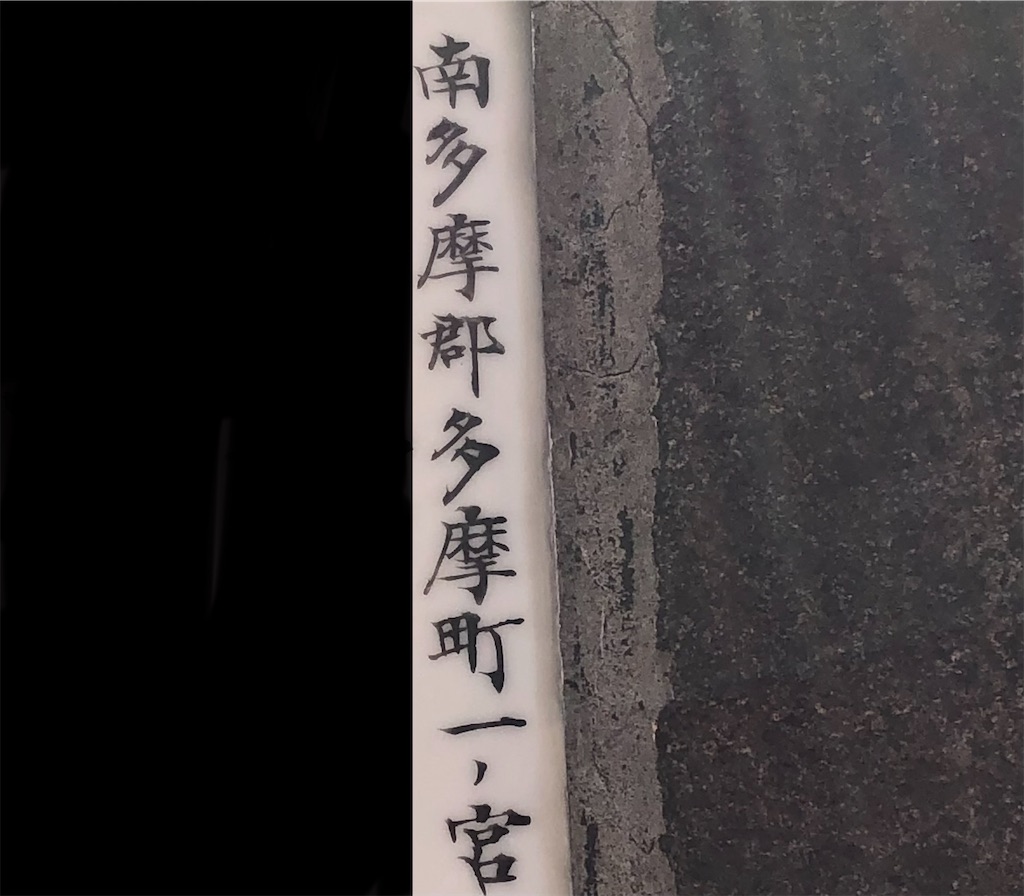 南多摩郡多摩町一ノ宮